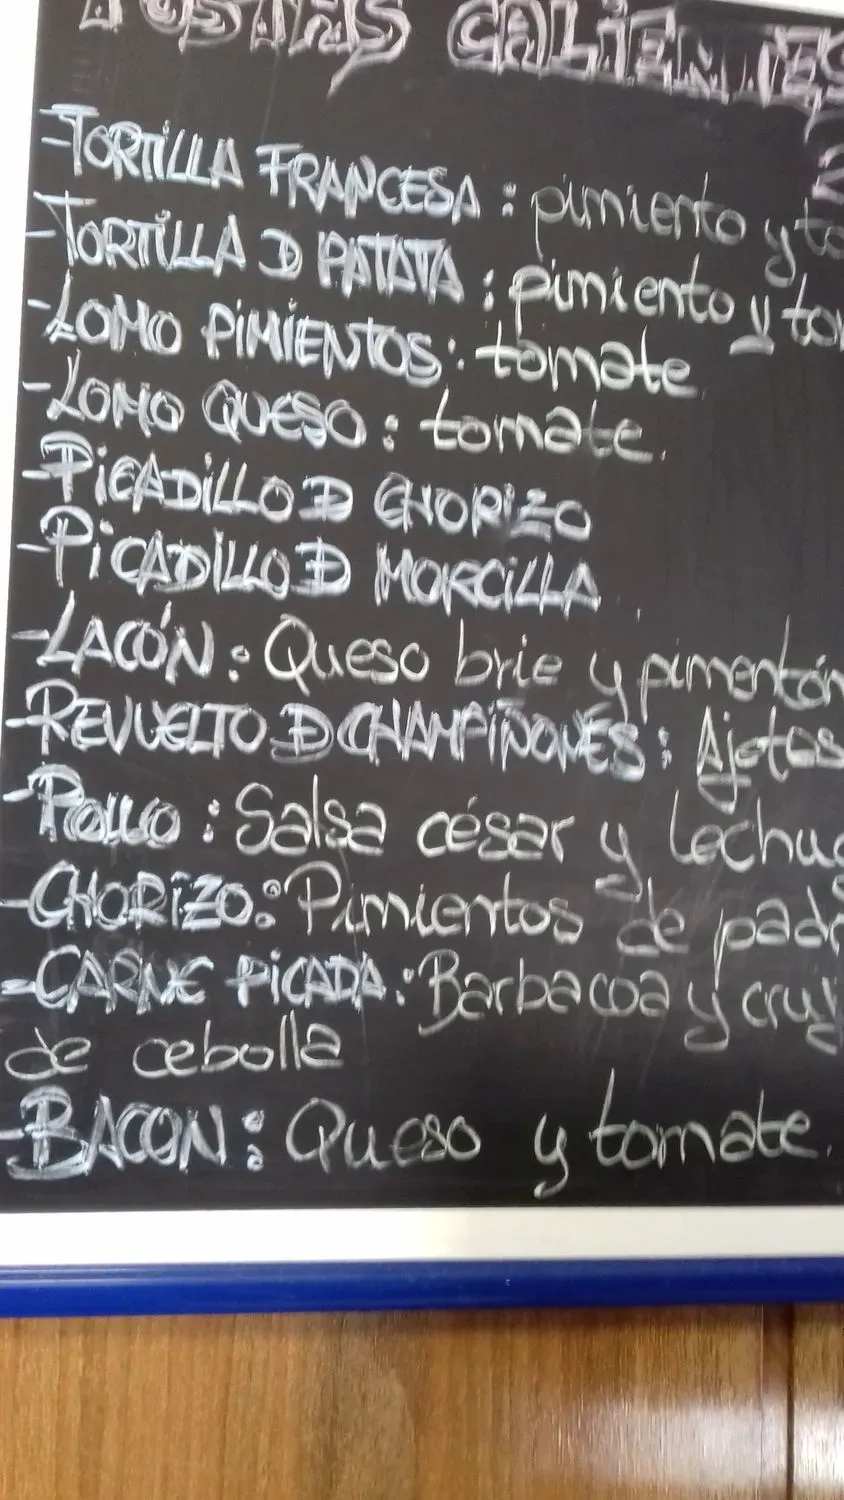 TOSTAS CALIENTES
-TORTILLA FRANCESA: pimiento y to
-TORTILLA D PATATA: pimiento y to
-LOMO PIMIENTOS: tomate
-LOMO QUESO: tomate.
-PICADILLO D CHORIZO
-PICADILLO D MORCILLA
-LACÓN: Queso brie y pimentón
-REVUELTO D CHAMPIÑONES: Ajetes
-POLLO: Salsa césar y lechug
-CHORIZO: Pimientos de padr
-CARNE PICADA: Barbacoa y cruj
de cebolla
-BACON: Queso y tomate.